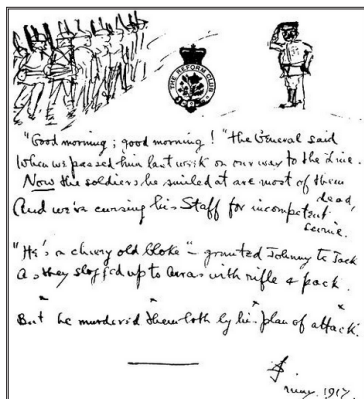 THE REFORM CLUB
"Good morning; good morning!" the General said
When we passed him last week on our way to the Line.
Now the soldiers he smiled at are most of them
dead,
And we're cursing his Staff for incompetent
swine.
"He's a cheery old bloke" – grunted Johnny to Jack
As they slogged up to Arras with rifle & pack.
But he murdered them both by his plan of attack.
1917.